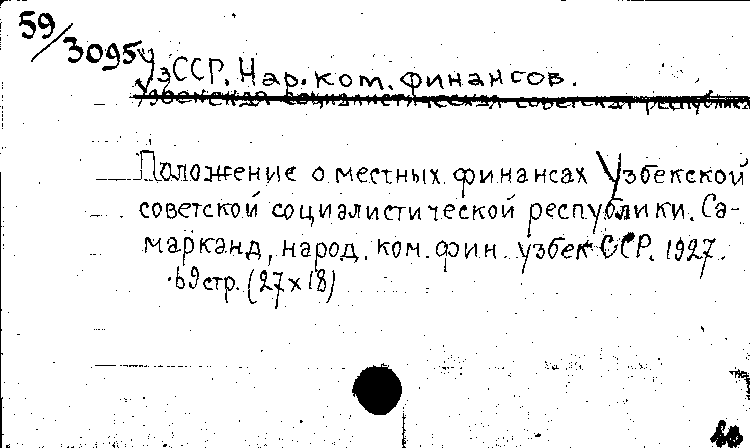 59/3095
УзССР. Нар. ком. финансов.
Узбекская социалистическая советская республика
Положение о местных финансах Узбекской
советской социалистической республики. Са-
марканд, народ. ком. фин. узбек ССР. 1927.
69 стр. (27х18)